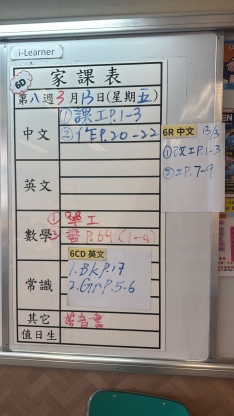 i-Learner
6D
家課表
第八週3月13日(星期五)
中文
①課工P.1-3
②作P.20-22
英文
數學
①學工
②書P.64(1-4)
常識
6CD 英文
1.BkP.17
2.GrP.5-6
其它
常音書
值日生
6R 中文 13/3
①改工P.1-3
②工P.7-9